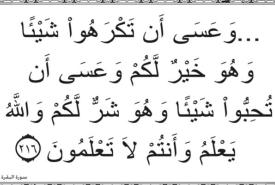 ...وَعَسَى أَن تَكْرَهُواْ شَيْئًا
وَهُوَ خَيْرٌ لَّكُمْ وَعَسَى أَن
تُحِبُّواْ شَيْئًا وَهُوَ شَرٌّ لَّكُمْ وَاللّهُ
يَعْلَمُ وَأَنتُمْ لاَ تَعْلَمُونَ ﴿٢١٦﴾
سورة البقرة